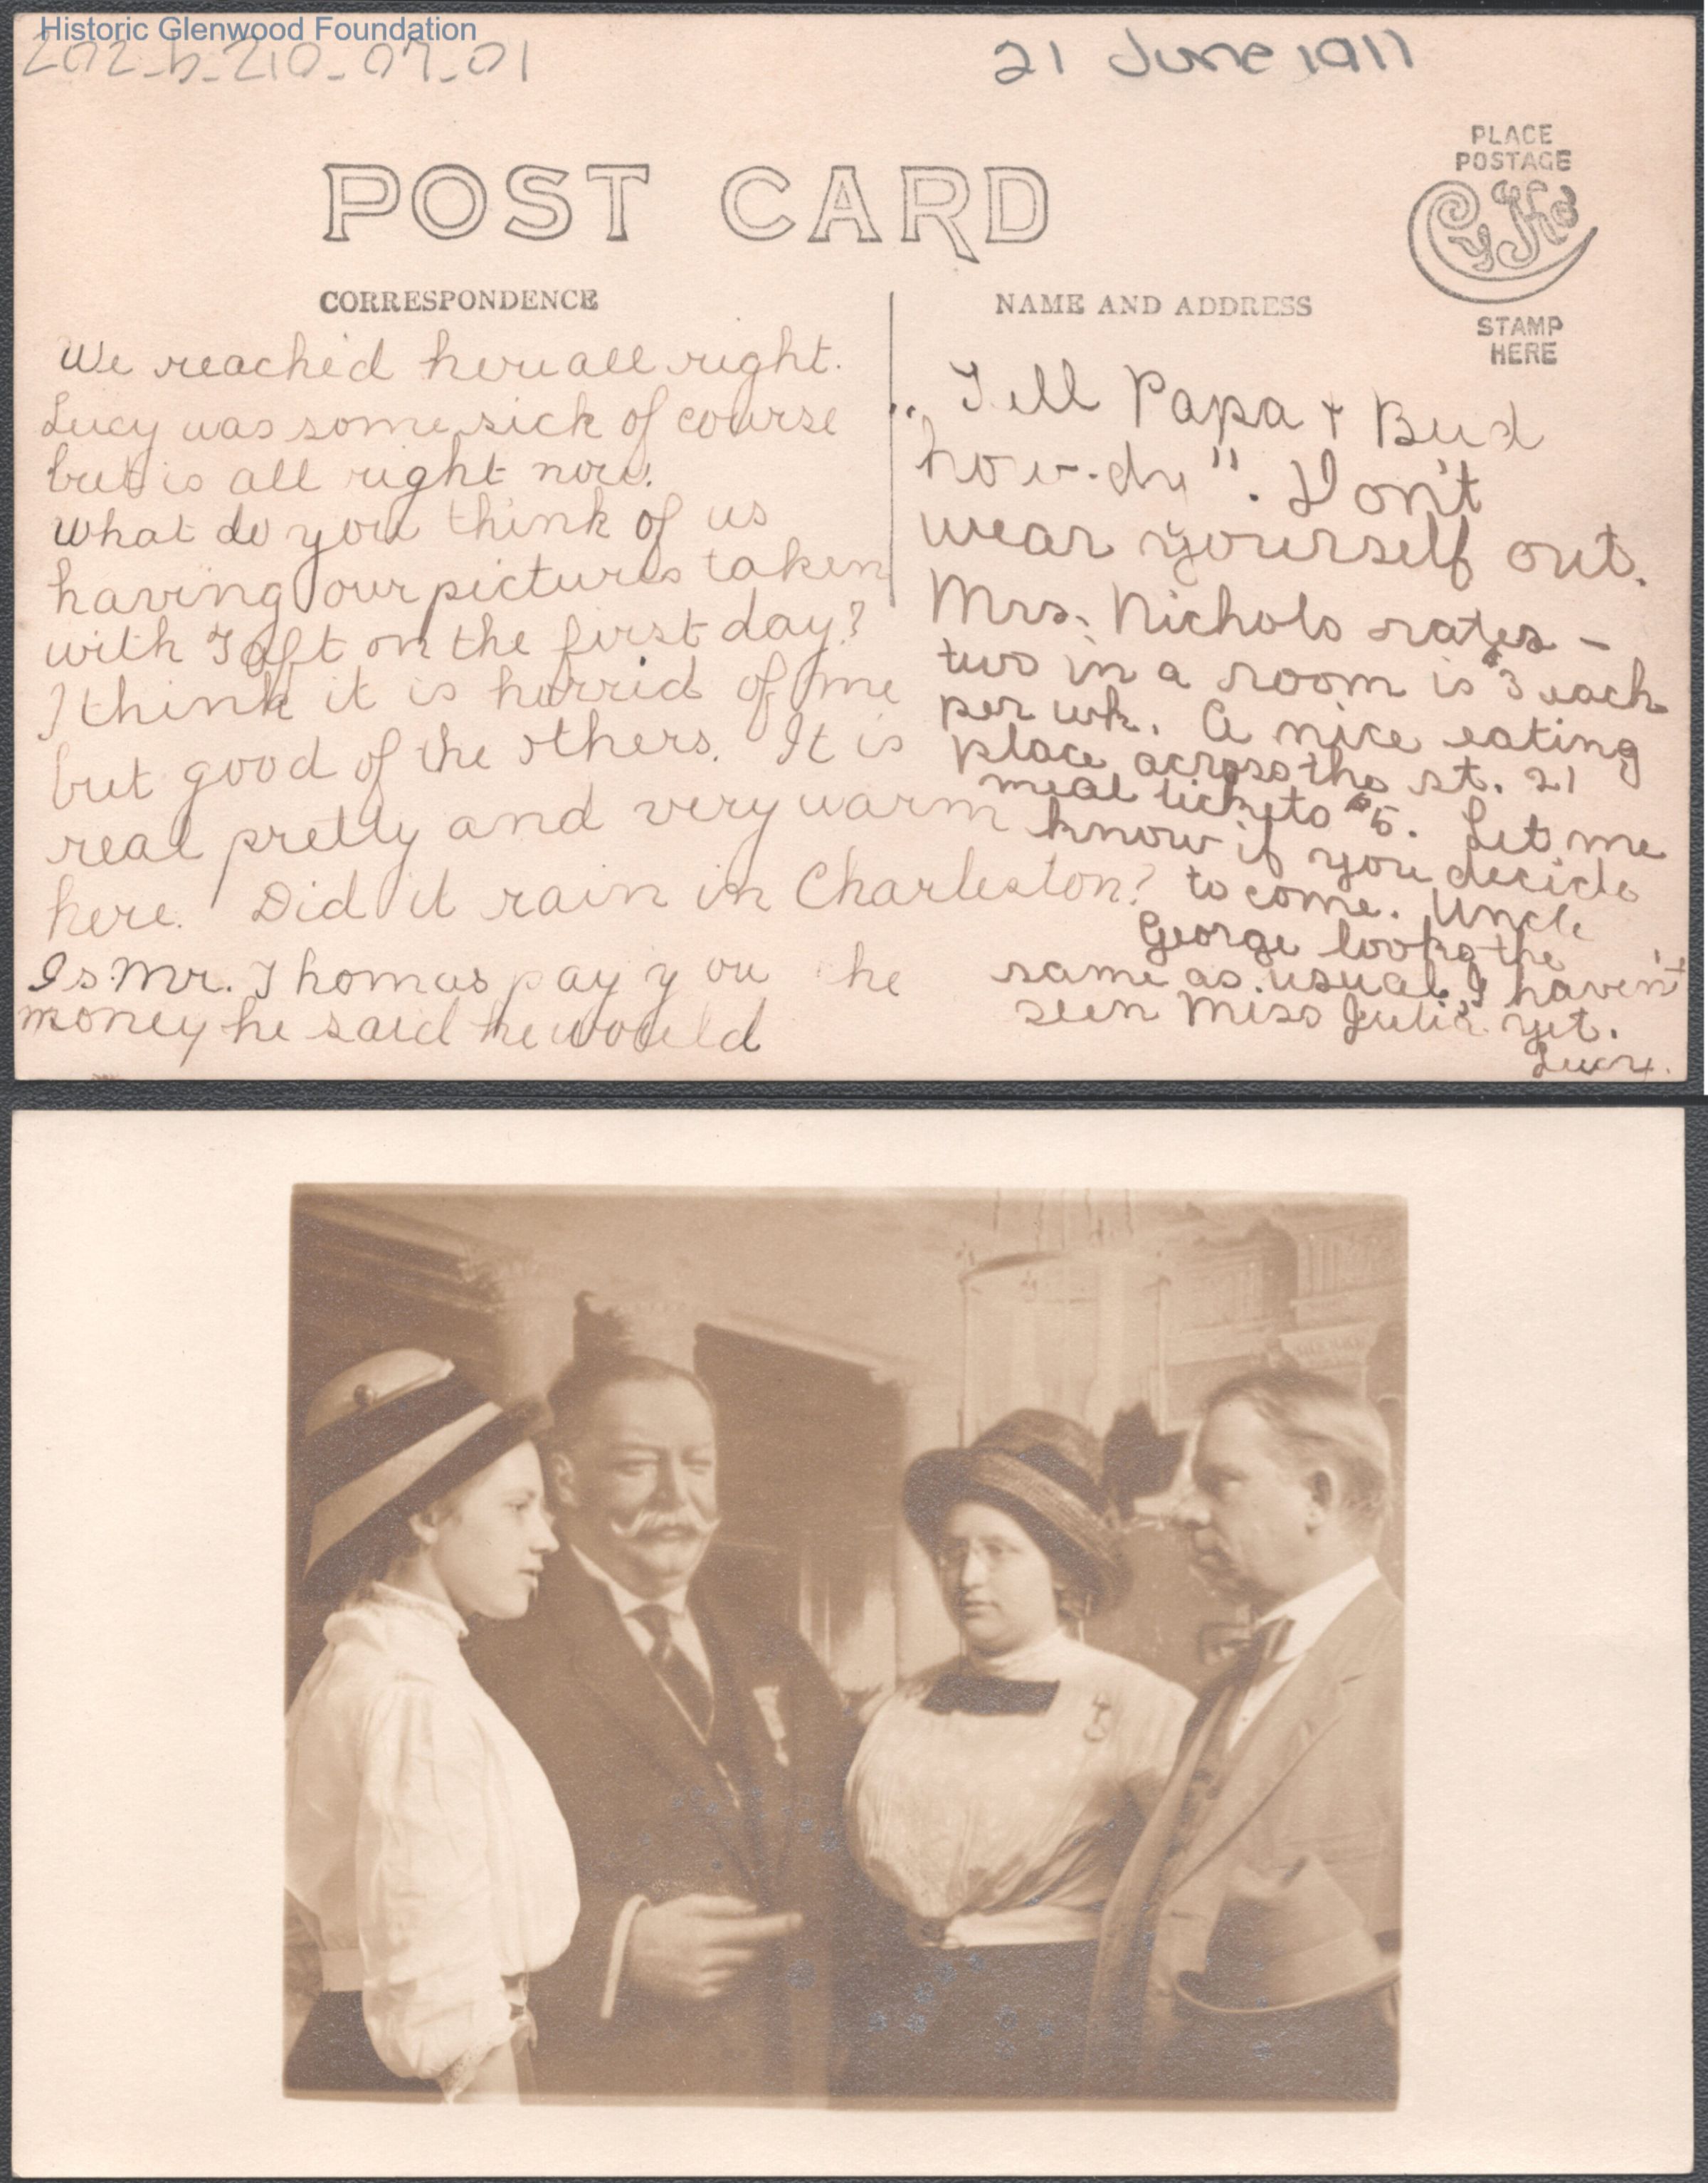 Historic Glenwood Foundation
202-b-210-07-01
21 June 1911
PLACE
POSTAGE
STAMP
HERE
POST CARD
CORRESPONDENCE
NAME AND ADDRESS
We reached here all right.
Lucy was some sick of course
but is all right now.
What do you think of us
having our pictures taken
with Taft on the first day?
I think it is horrid of me
but good of the others. It is
real pretty and very warm
here. Did it rain in Charleston?
Is Mr. Thomas pay you he
money he said he would
"Tell Papa + Bud
how-dy". Don't
wear yourself out.
Mrs. Nichols rates -
two in a room is $3 each
per wk. A nice eating
place across the st. 21
meal tickets $5. Let me
know if you decide
to come. Uncle
George looks the
same as usual, I haven't
seen Miss Julia yet.
Lucy.